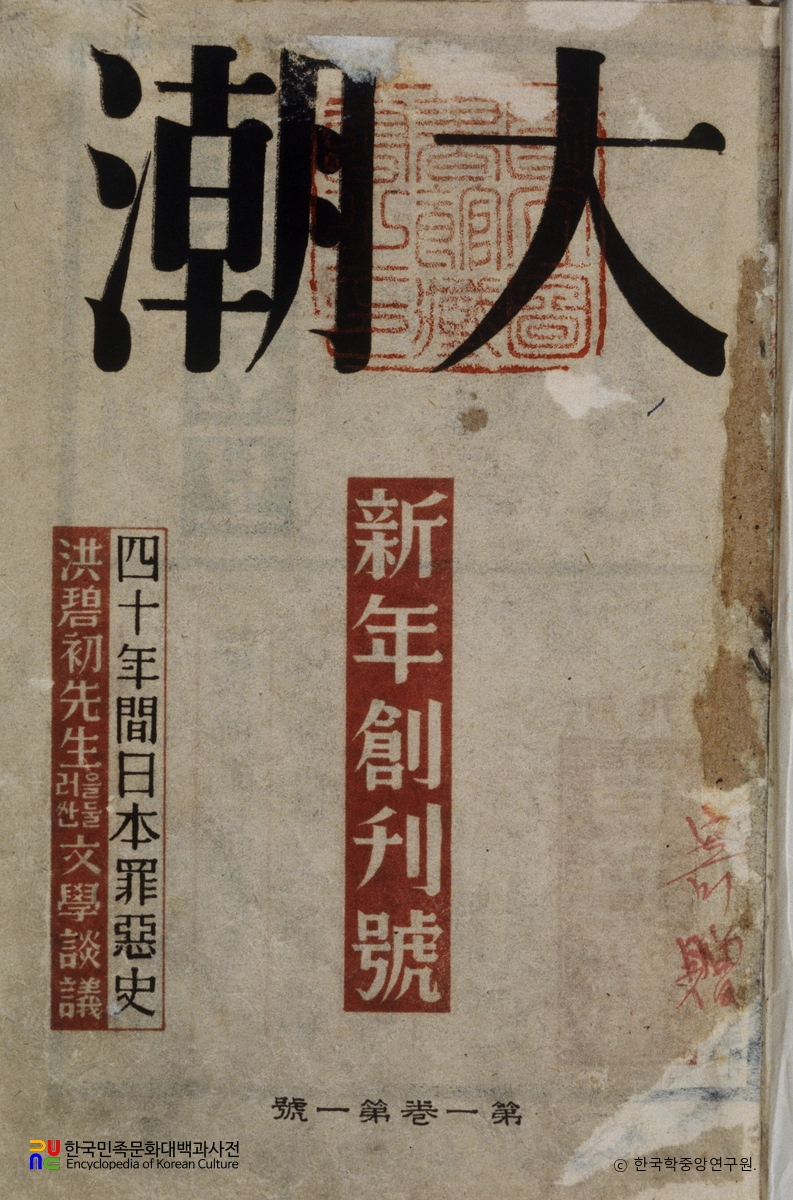 大潮
新年創刊號
四十年間日本罪惡史
洪碧初先生을둘러싼文學談議
第一卷第一號
贈
한국민족문화대백과사전
Encyclopedia of Korean Culture
ⓒ 한국학중앙연구원.